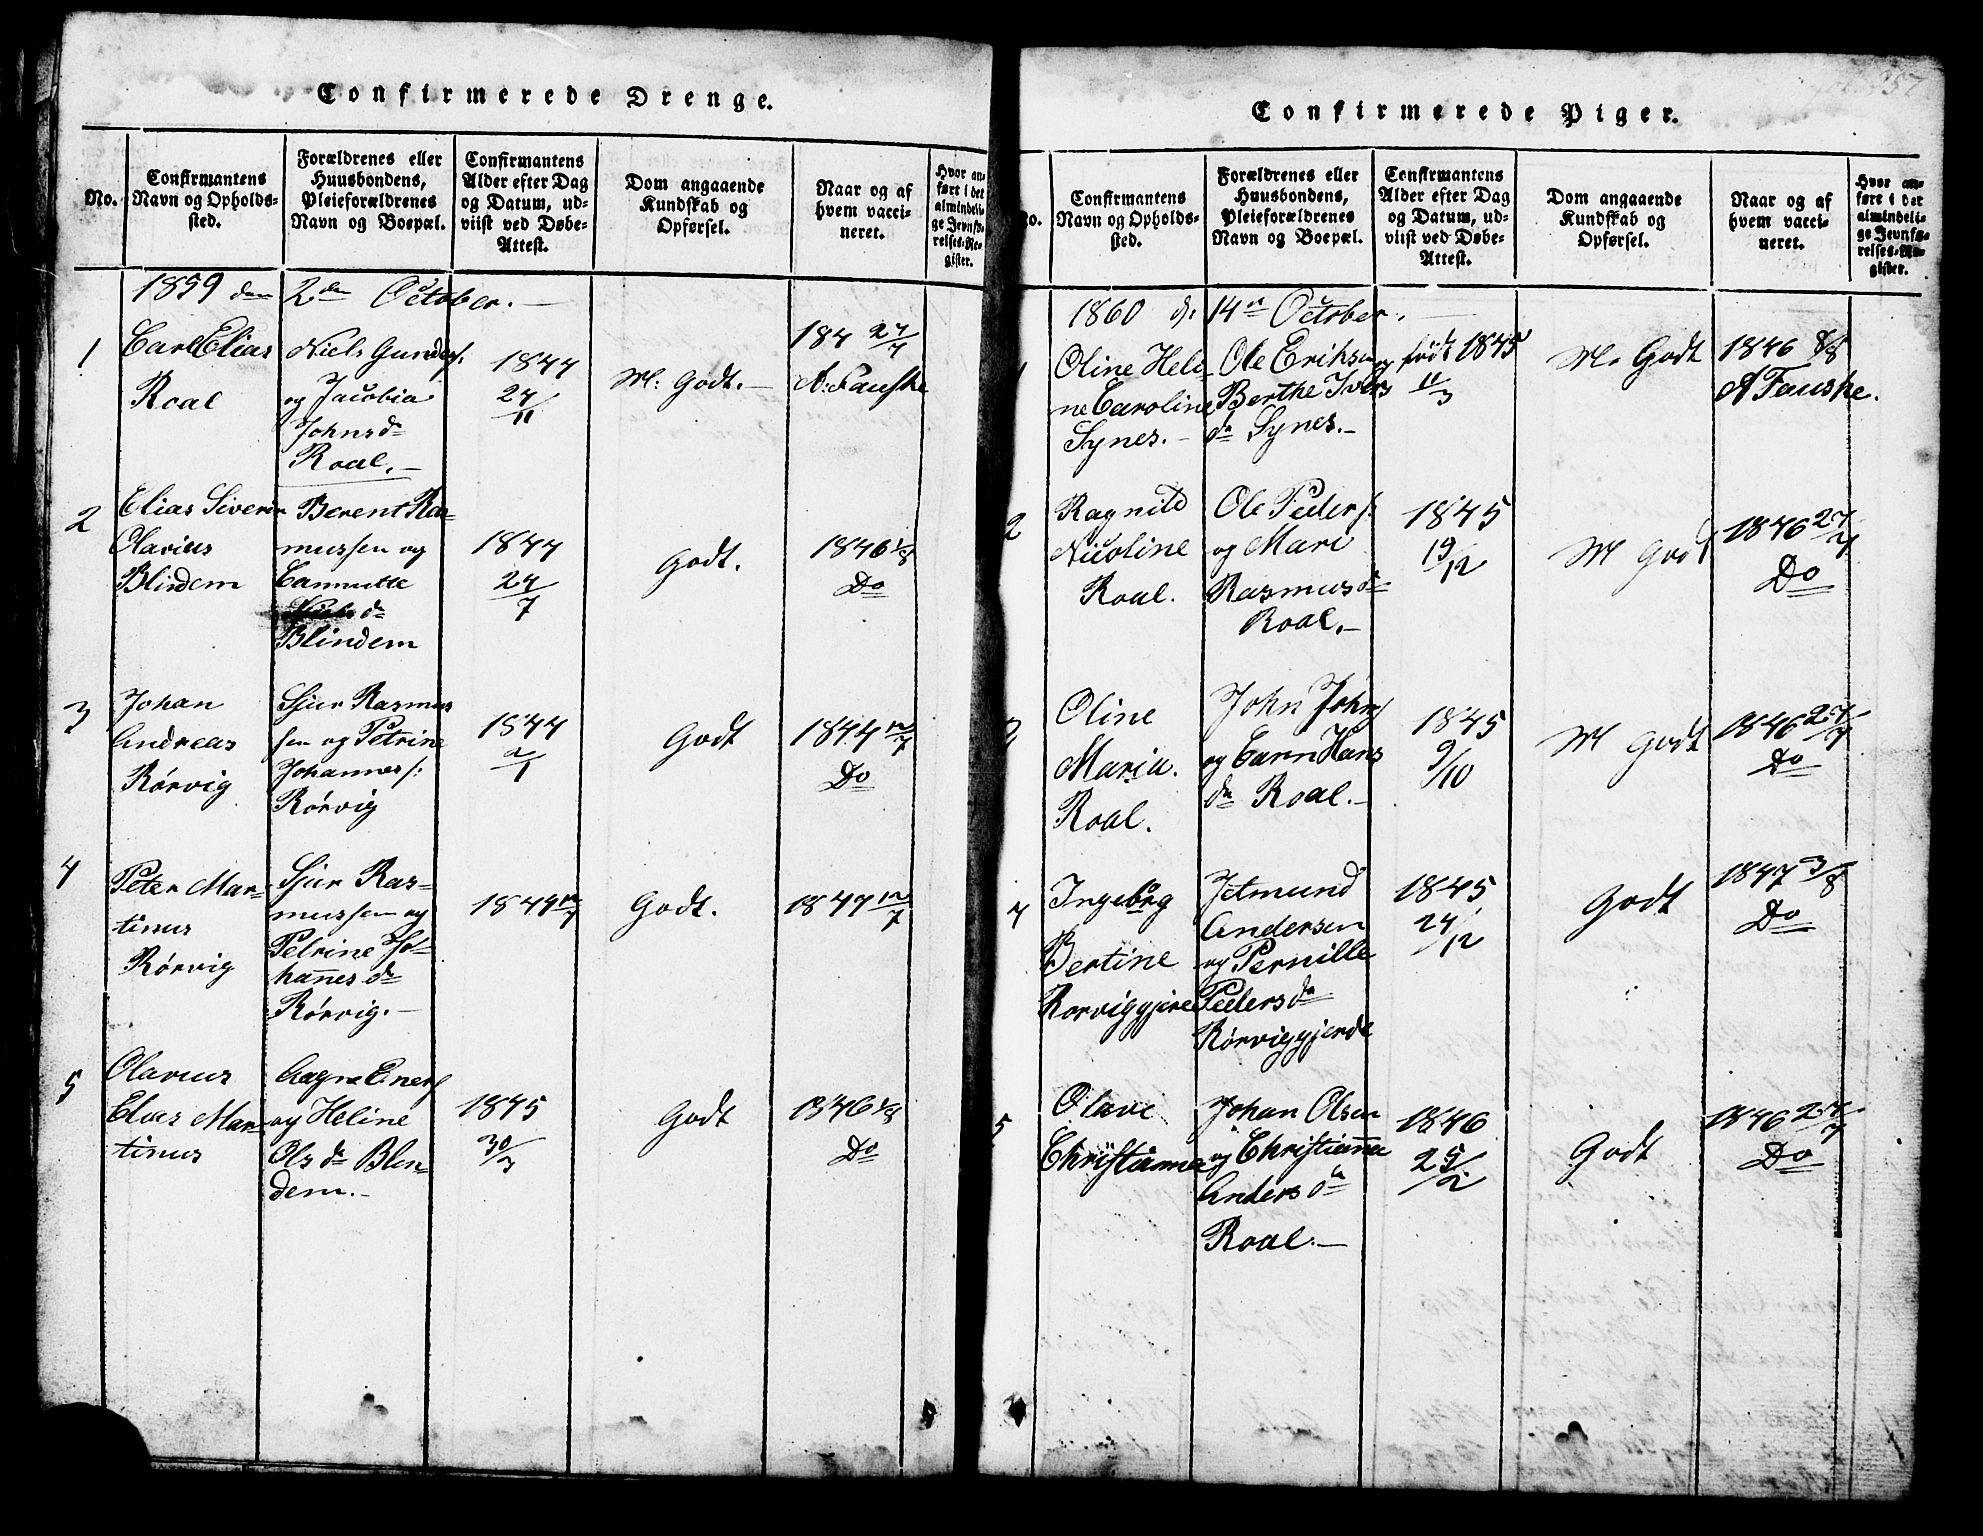 Confirmerede Drenge.
No.
Confirmantens
Navn og Opholds-
sted.
Forældrenes eller
Huusbondens,
Pleieforældrenes
Navn og Boepæl.
Confirmantens
Alder efter Dag
og Datum, ud-
viist ved Døbe-
Attest.
Dom angaaende
Kundskab og
Opførsel.
Naar og af
hvem vacci-
neret.
Hvor an-
ført i det
almindeli-
ge Jevnfø-
relses-Re-
gister.
1859 den 2den October. —
1
Carl Elias
Roal
Niels Gunders.
og Jacobia
Johnsd
Roal. —
1844
24/11
M: Godt. —
184 27/7
A: Fauske
2
Elias Siverin
Olavius
Blindem
Berent Ras-
mussen og
Cannutte
d
Blindem
1844
24/7
Godt.
1846 1/8
Do
3
Johan
Andreas
Rørvig
Sjur Rasmus
sen og Petrine
Johannes/:
Rørvig
1844
2/1
Godt
1844 12/7
Do
4
Peter Mar-
tinus
Rørvig
Sjur Ras-
mussen og
Petrine Jo-
hannes d
Rørvig. —
1844 12/7
Godt.
1847 12/7
5
Olavius
Elias Mar-
tinus
Aagne Eners
og Heline
Ols d Blin-
dem. -
1845
30/3
Godt
1846 1/8
Do
357
Confirmerede Piger.
No.
Confirmantens
Navn og Opholds-
sted.
Forældrenes eller
Huusbondens,
Pleieforældrenes
Navn og Boepæl.
Confirmantens
Alder efter Dag
og Datum, ud-
viist ved Døbe-
Attest.
Dom angaaende
Kundskab og
Opførsel.
Naar og af
hvem vacci-
neret.
Hvor an-
ført i det
almindeli-
ge Jevnfø-
relses-Re-
gister.
1860 d. 14de October. —
1
Oline Heli-
ne Caroline
Synes. -
Ole Eriksen og
Berthe Ivers
da Synes. -
født 1845
11/3
M. Godt
1846 8/8
A Fauske.
2
Ragnild
Nicoline
Roal.
Ole Peders.
og Mari
Rasmus d
Roal. -
1845
19/12
M Godt
1846 27/7
Do
3
Oline
Maria.
Roal.
John Johns
og Carn Hans
da Roal. -
1845
9/10
M Godt
1846 27/7
Do
4
Ingeborg
Bertine
Rorviggjere
Jetmund
Andersen
og Pernille
Peders da
Rørviggjerde
1845
24/12
Godt
1847 3/8
Do
5
Olave
Christianna
Johan Olsen
og Christianna
Anders da
Roal. —
1846
25/2
Godt
1846 27/7
Do